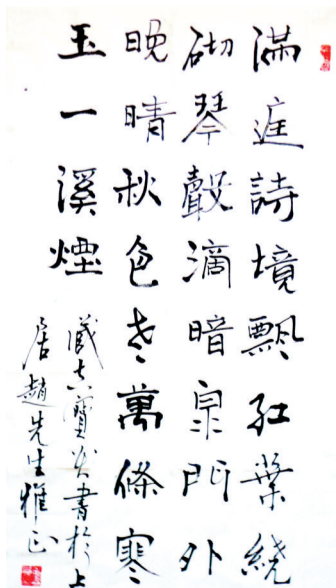 滿庭詩境飄紅葉繞
砌琴聲滴暗泉門外
晚晴秋色老萬條寒
玉一溪煙
書於上
居趙先生雅正